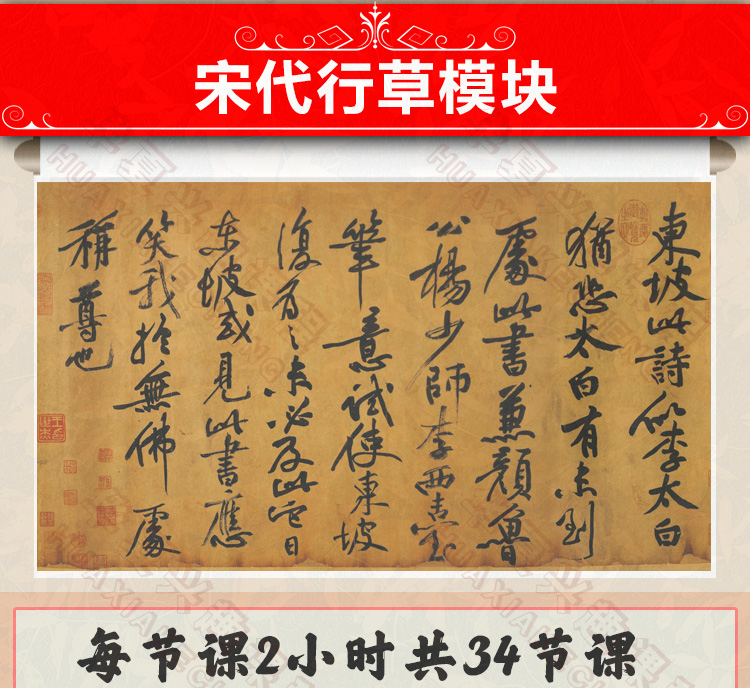 宋代行草模块
東坡此詩似李太白
猶恐太白有未到
處此書兼顏魯
公楊少師李西臺
筆意試使東坡
復為之未必及此它日
東坡或見此書應
笑我於無佛處
稱尊也
每节课2小时共34节课